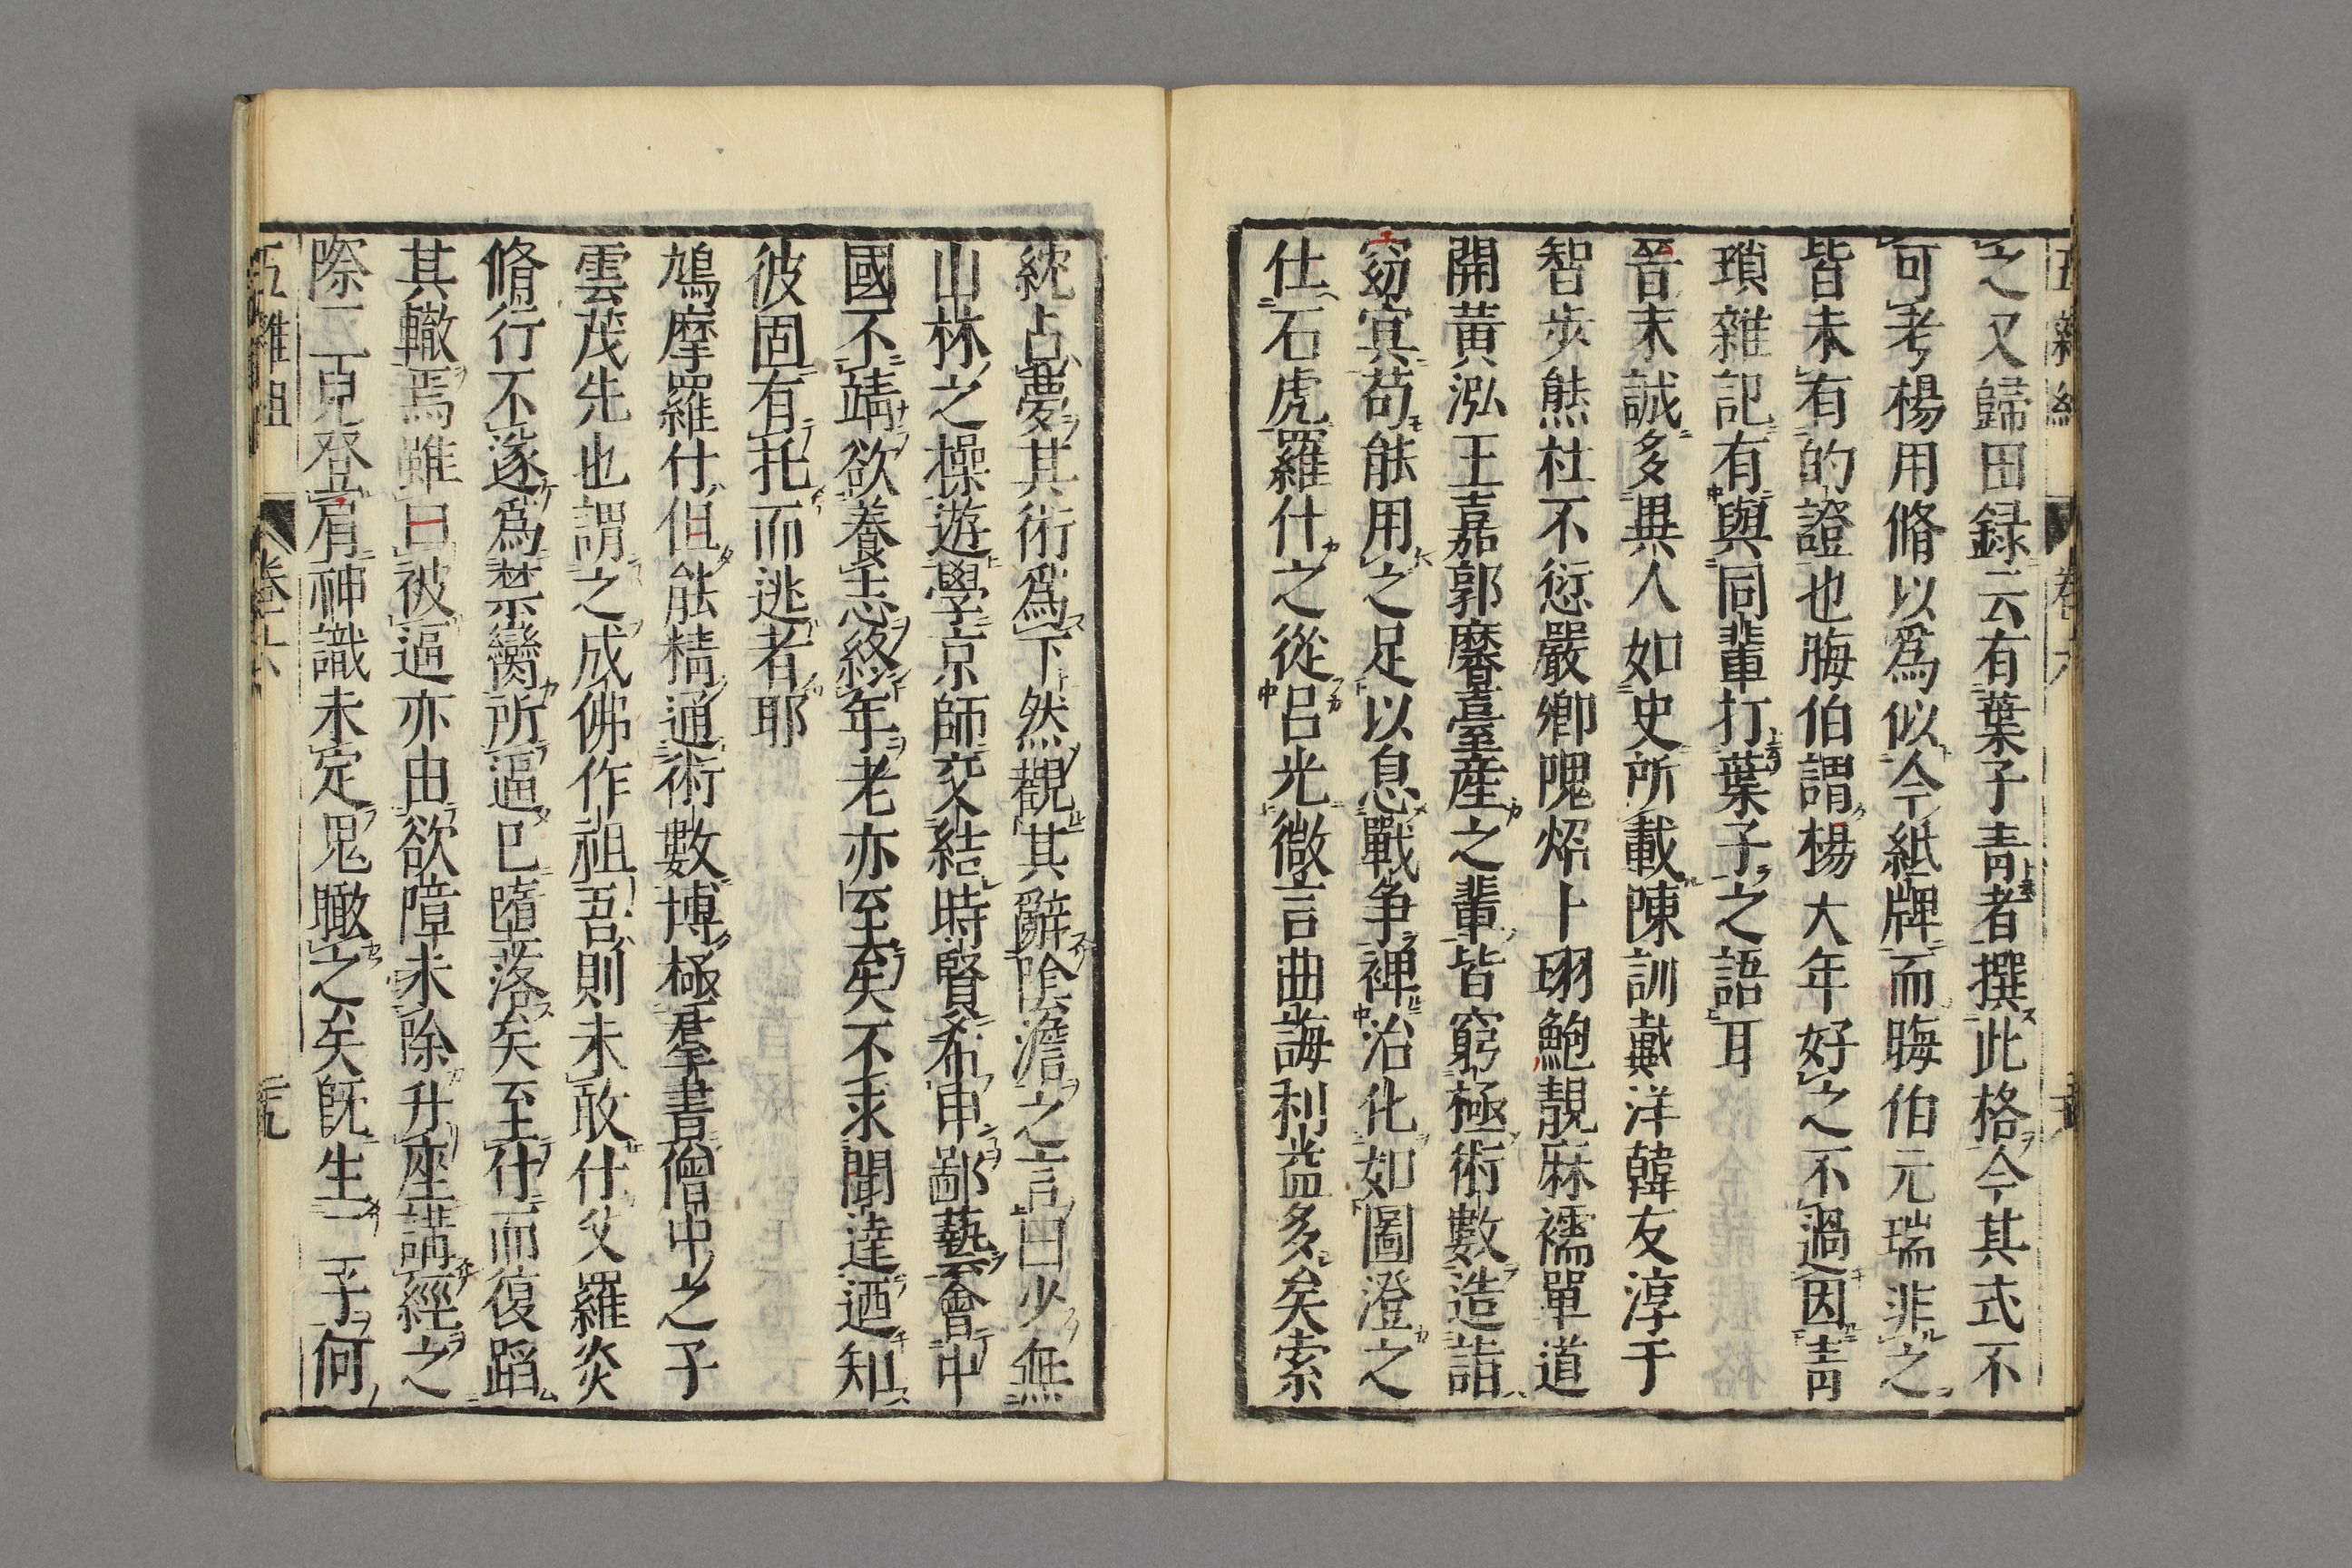 之又歸田録云有葉子青者撰此格今其式不
可考楊用脩以為似今紙牌而晦伯元瑞非之
皆未有的證也晦伯謂楊大年好之不過因青
瑣雜記有與同輩打葉子之語耳
晉末誠多異人如史所載陳訓戴洋韓友淳于
智步熊杜不愆嚴卿隗炤卜珝鮑靚麻襦單道
開黃泓王嘉郭黁臺産之輩皆窮極術數造詣
窈寘苟能用之足以息戰争裨治化如圖澄之
仕石虎羅什之從呂光微言曲誨利益多矣索
紞占夢其術為下然觀其辭陰澹之言曰少無
山林之操遊學京師交結時賢希申鄙藝會中
國不靖欲養志終年老亦至矣不求聞達迺知
彼固有托而逃者耶
鳩摩羅什但能精通術數博極羣書僧中之子
雲茂先也謂之成佛作祖吾則未敢什父羅炎
脩行不遂為禁臠所逼已墮落矣至什而復蹈
其轍焉雖曰被逼亦由欲障未除升座講經之
際二兒登肩神識未定鬼瞰之矣旣生二子何
五雜組 卷六